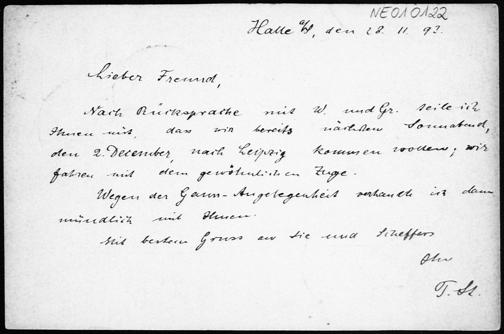 NE010122
Halle a/S, den 28. 11. 93.
Lieber Freund,
Nach Rücksprache mit W. und Gr. teile ich
Ihnen mit, das wir bereits nächsten Sonnabend,
den 2. December, nach Leipzig kommen wollen; wir
fahren mit dem gewöhnlichen Zuge.
Wegen der Gauss-Angelegenheit verhandle ich dann
mündlich mit Ihnen.
Mit bestem Gruss an Sie und Scheffers
Ihr
T. St.